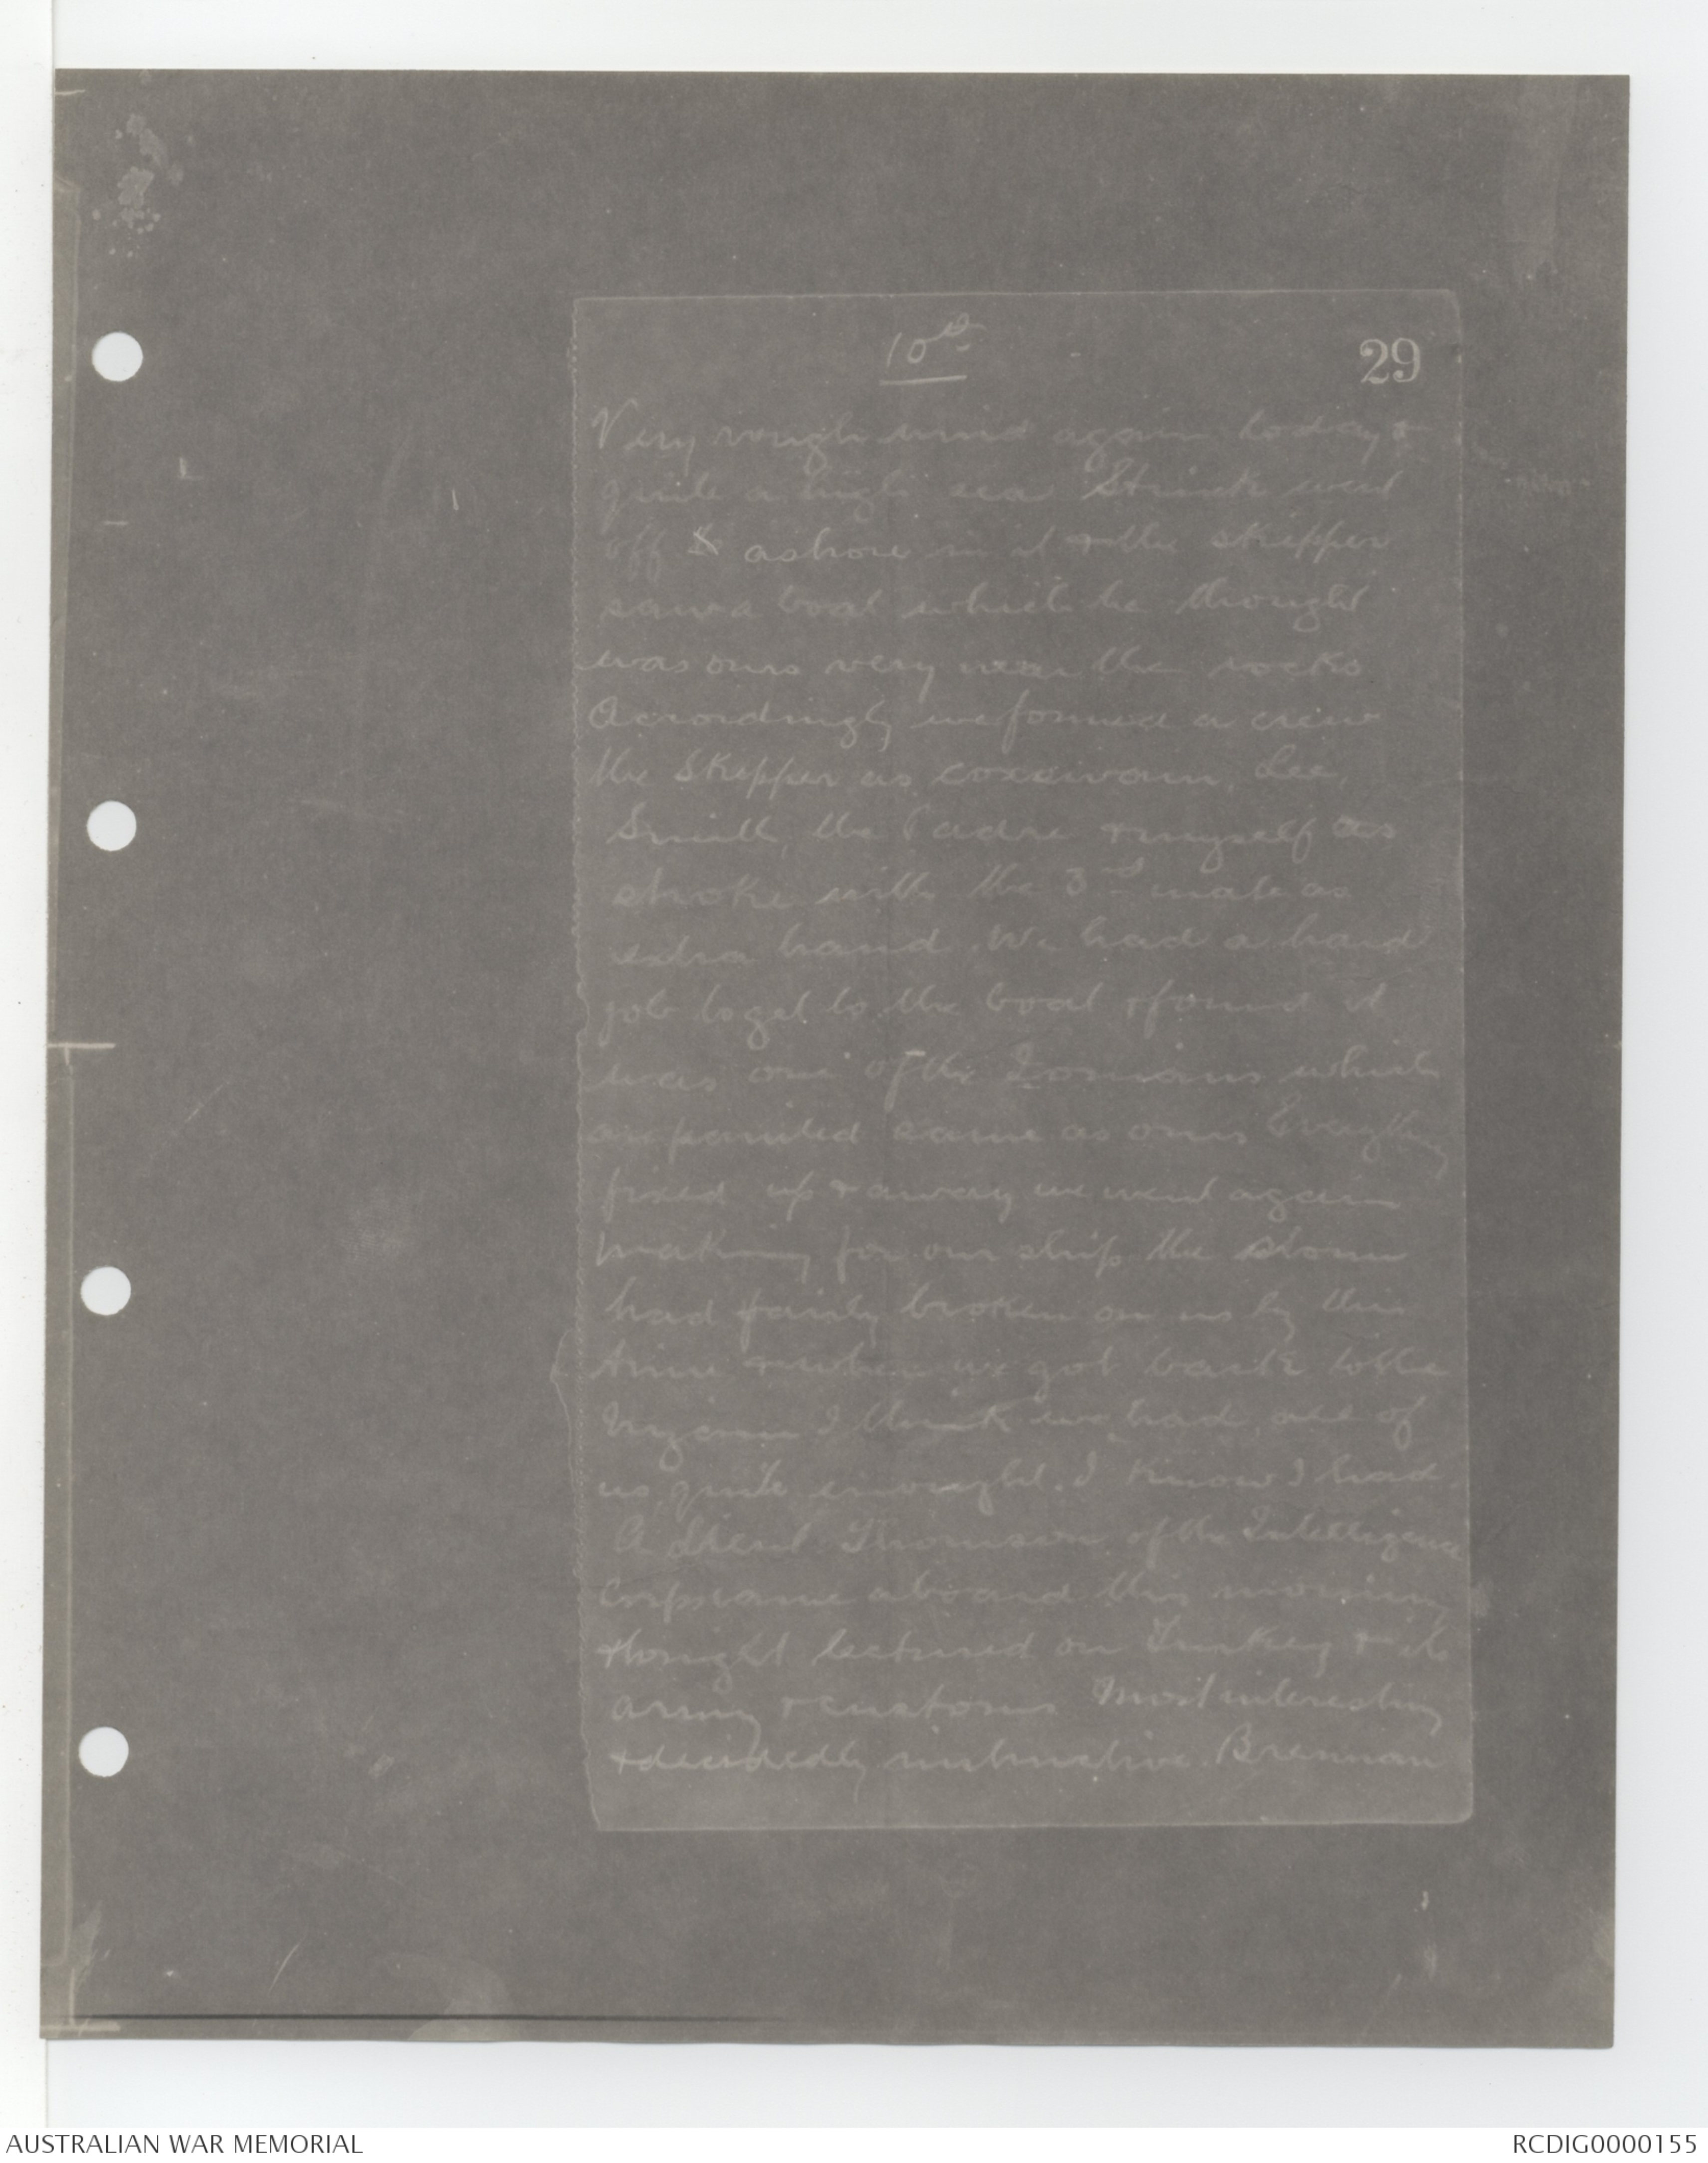 10th
29
Very rough wind again today &
quite a high sea Struck went
off & ashore in it & the skipper
saw a boat which he thought
was ours very near the rocks
Accordingly we formed a crew
the Skipper as coxswain, Lee,
Smith, the Padre & myself as
stroke with the 3rd mate as
extra hand. We had a hard
job to get to the boat & found it
was one of the Ionians which
are painted same as ours Everything
fixed up & away we went again
making for our ship the storm
had fairly broken on us by this
time & when we got back to the
Nizam I think we had all of
us quite enought. I know I had.
A Lieut Thomson of the Intelligence
Corps came aboard this morning
tonight lectured on Turkey & its
army & customs Most interesting
& decidedly instructive. Brennan
AUSTRALIAN WAR MEMORIAL
RCDIG0000155